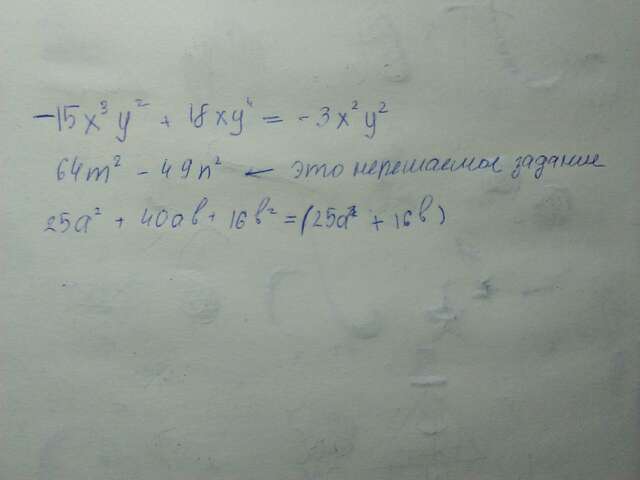 -15x³y² + 18xy⁴ = -3x²y²
64m² - 49n² ← это нерешаемое задание
25a² + 40ab + 16b² = (25a² + 16b)